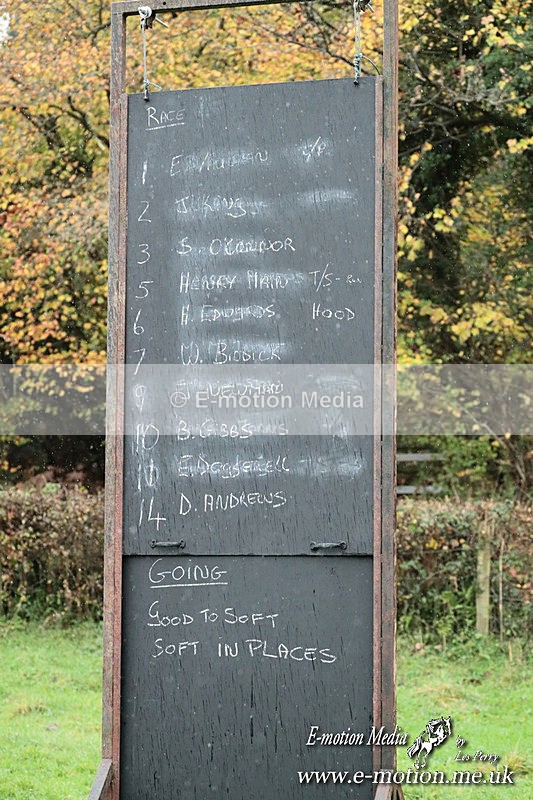 RACE
1
2 J. KING
3 S. O'CONNOR
5 HENRY MAIN T/S-
6 H. EDWARDS HOOD
7 W. BIDDICK
9
© E-motion Media
10 B. GIBBS
14 D. ANDREWS
GOING
GOOD TO SOFT
SOFT IN PLACES
E-motion Media by Les Perry
www.e-motion.me.uk